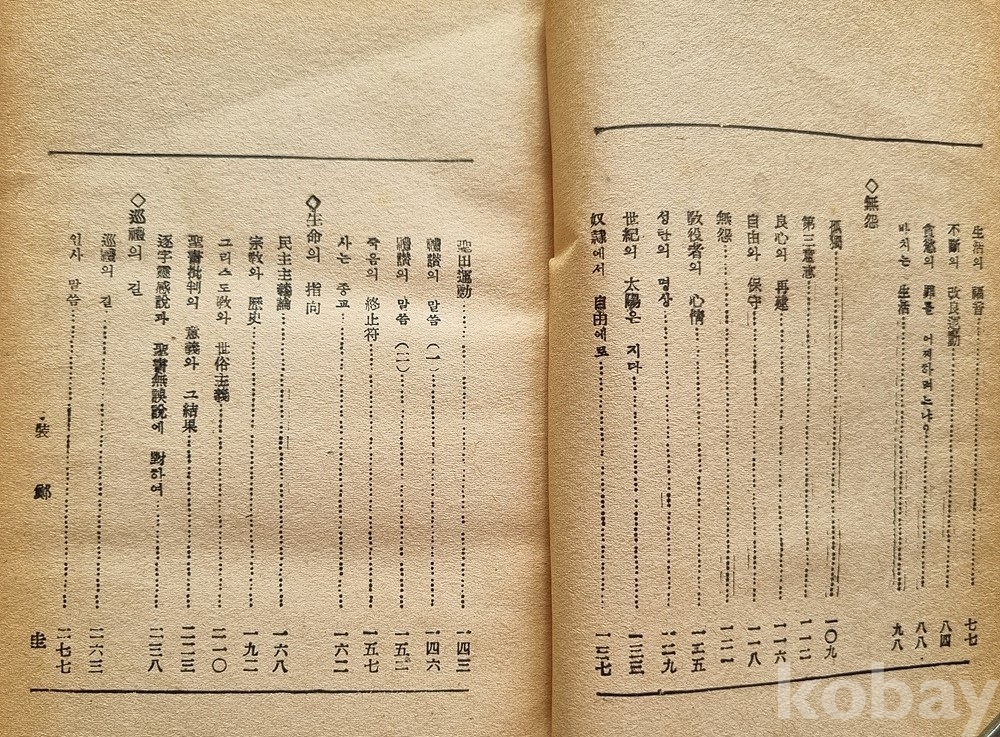 生活의 福音 七七
不斷의 改良運動 八四
貪慾의 罪를 어찌하려느냐? 八八
바치는 生活 九八
◇無怨
孤獨 一〇九
第三意志 一一二
良心의 再建 一一六
自由와 保守 一一八
無怨 一二一
敎役者의 心情 一二五
성탄의 명상 一二九
世紀의 太陽은 지다 一三三
奴隷에서 自由에로 一三七
聖田運動 一四三
禮讃의 말씀 (一) 一四六
禮讃의 말씀 (二) 一五二
죽음의 終止符 一五七
사는 종교 一六二
◇生命의 指向
民主主義論 一六八
宗敎와 歷史 一九二
그리스도敎와 世俗主義 二一〇
聖書批判의 意義와 그 結果 二二三
逐字靈感說과 聖書無誤說에 對하여 二三八
◇巡禮의 길
巡禮의 길 二六三
인사 말씀 二七七
裝 鄭 圭
kobay